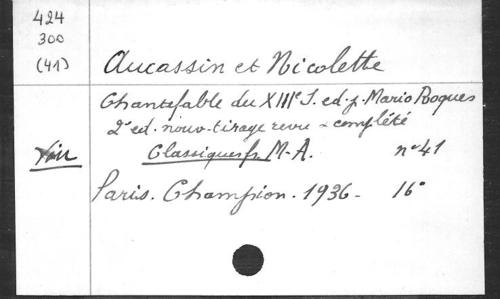 424
300
(41)
Aucassin et Nicolette
Chantefable du XIIIe S. ed. p. Mario Roques
2e ed. nouv. tirage revu & complété
Classiques fr. M-A. n° 41
Paris. Champion. 1936 - 16°